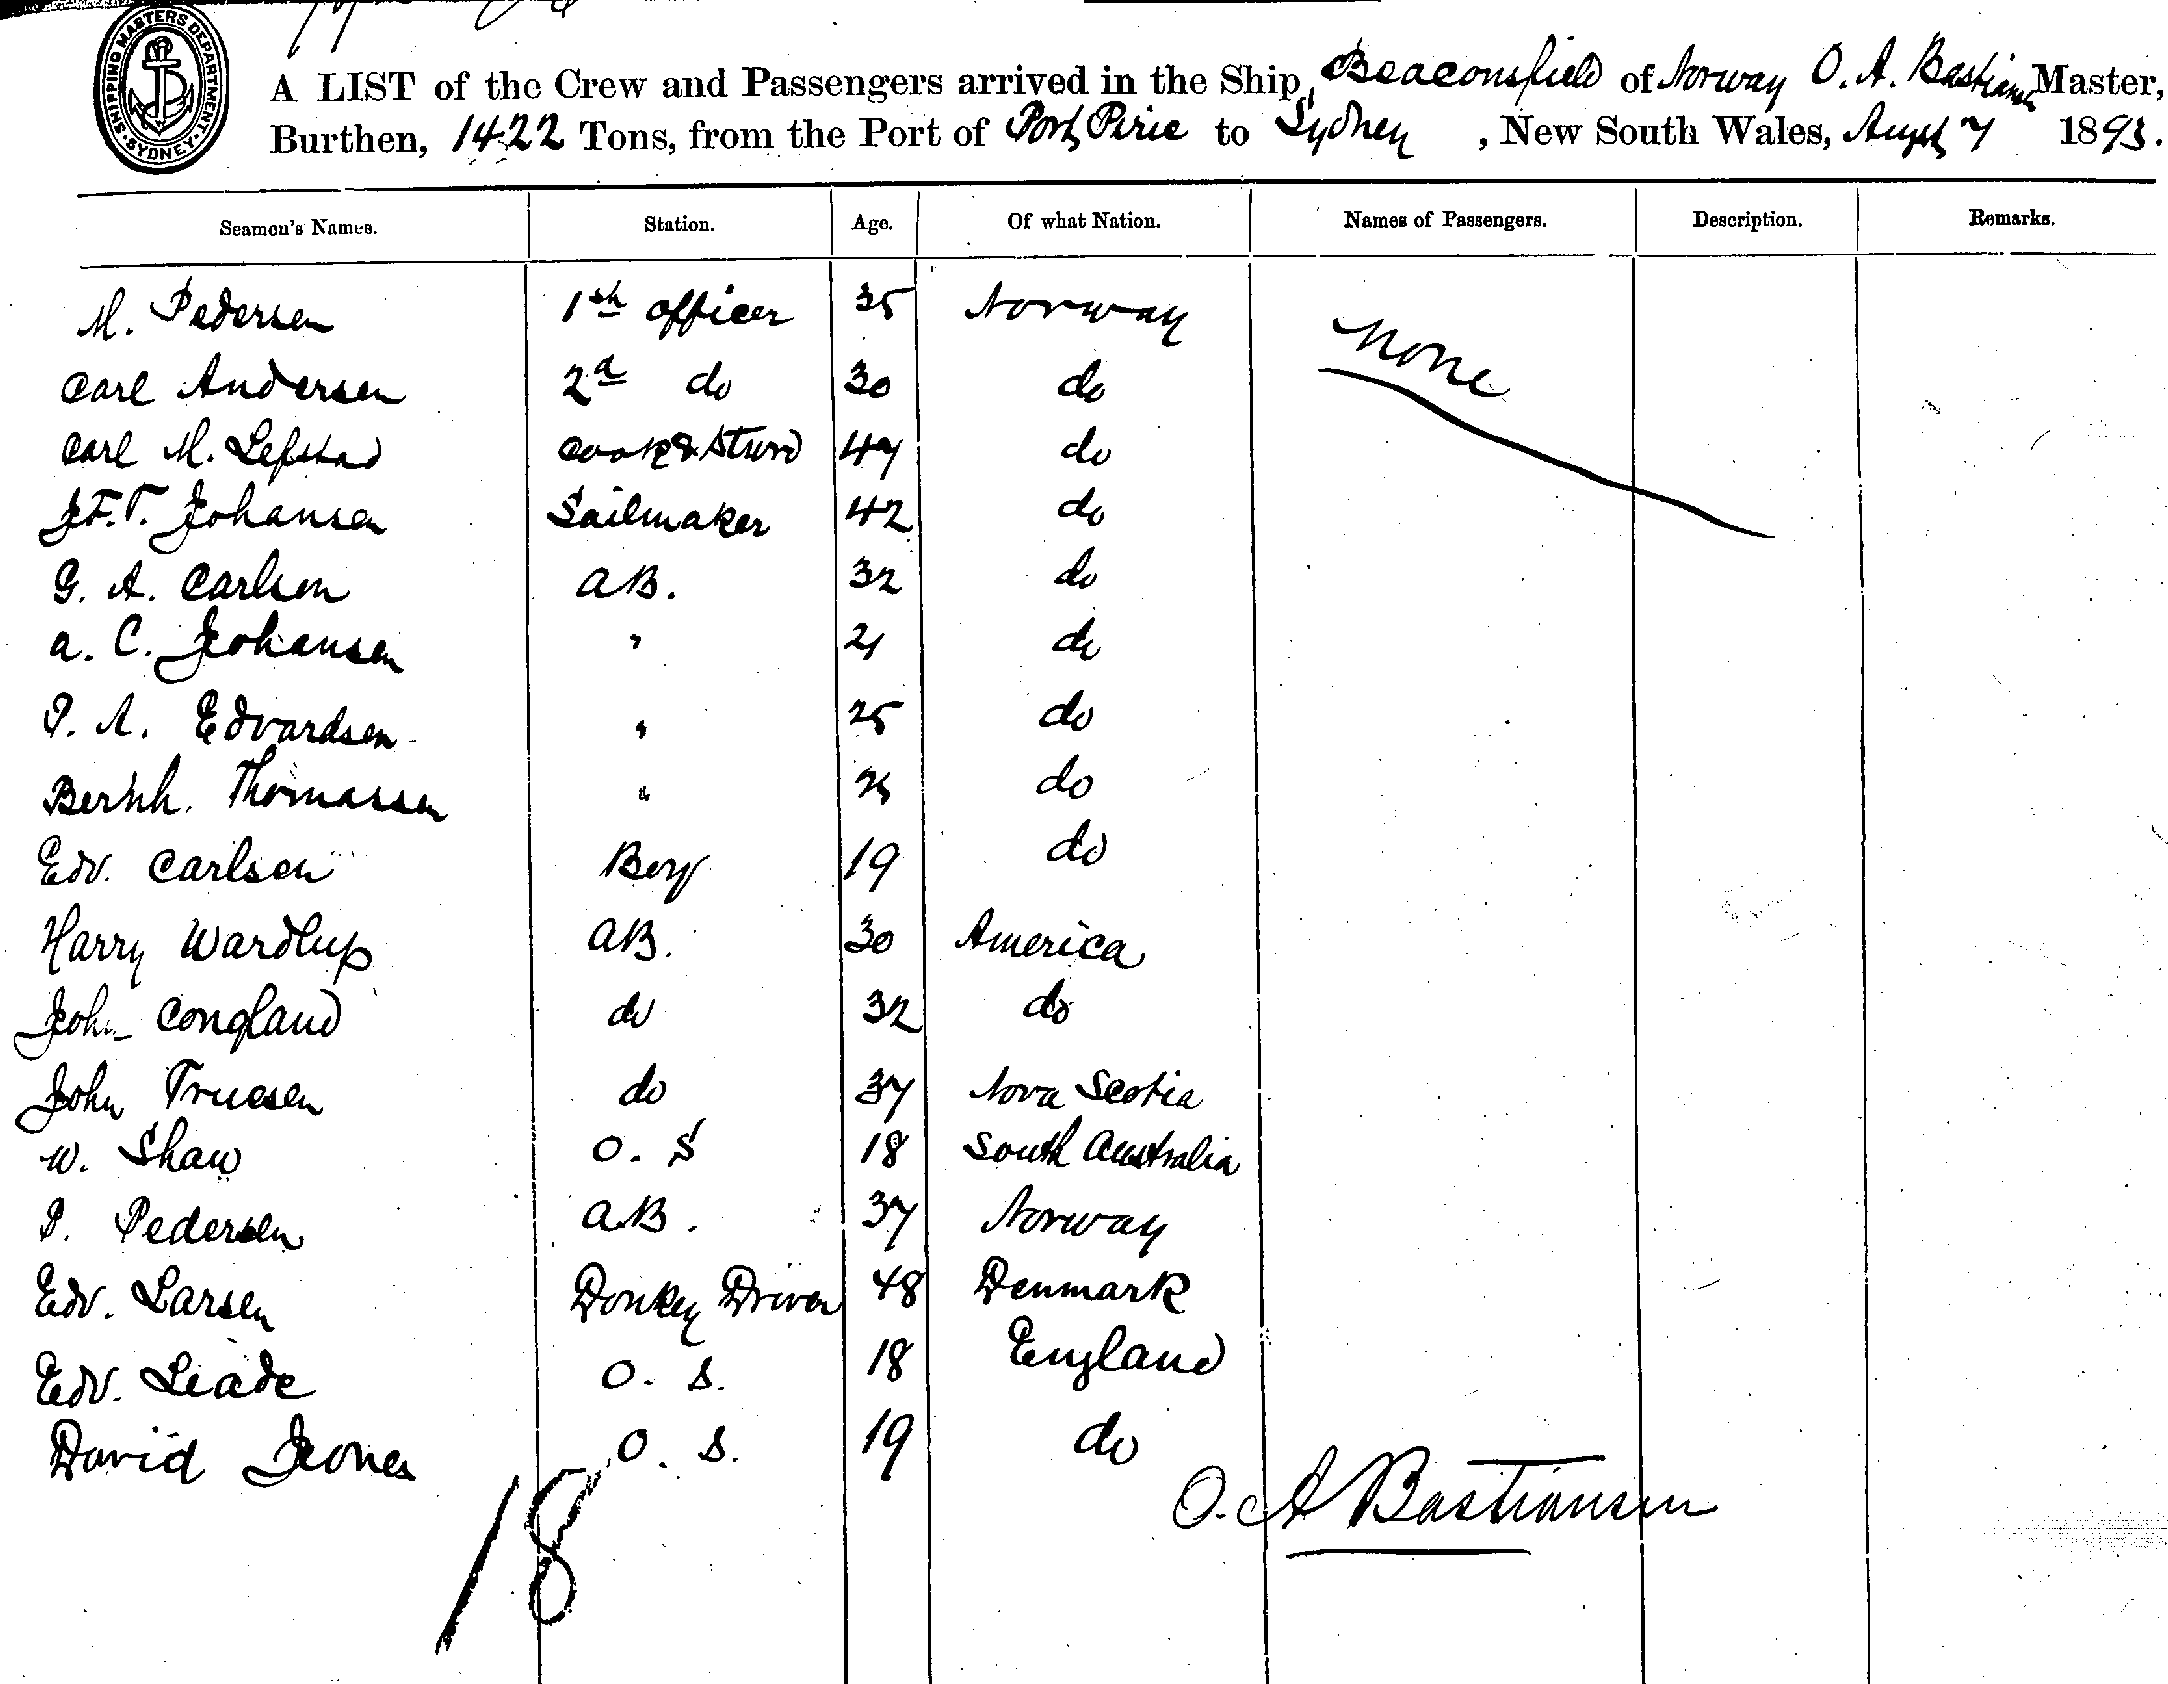 SHIPPING MASTERS DEPARTMENT SYDNEY
A LIST of the Crew and Passengers arrived in the Ship, Beaconsfield of Norway O. A. Bastiansen Master,
Burthen, 1422 Tons, from the Port of Port Pirie to Sydney, New South Wales, Augst 7 1893.
Seamen's Names. Station. Age. Of what Nation. Names of Passengers. Description. Remarks.
M. Pedersen 1st officer 35 Norway None
Carl Andersen 2d do 30 do
Carl M. Lefstad Cook & Stwrd 47 do
J.F.T. Johansen Sailmaker 42 do
G. A. Carlson AB. 32 do
A. C. Johansen " 21 do
P. A. Edvardsen " 25 do
Bernh. Thomassen " 25 do
Edv. Carlsen Boy 19 do
Harry Wardlup AB. 30 America
John Congland do 32 do
John Truesen do 37 Nova Scotia
W. Shaw O. S 18 South Australia
P. Pedersen AB. 37 Norway
Edv. Larsen Donkey Driver 48 Denmark
Edv. Leade O. S. 18 England
David Jones O. S. 19 do
O. A Bastiansen
18